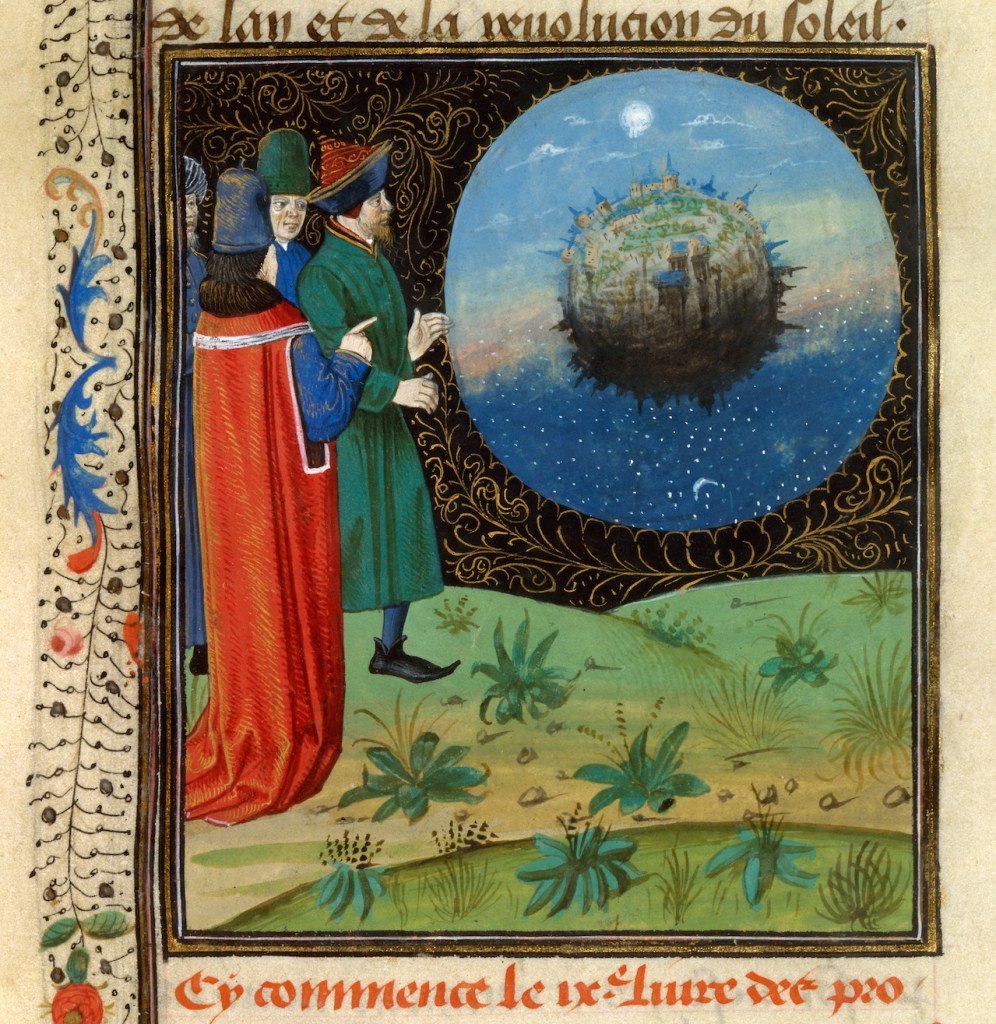 de lan et de la reuolucion du soleil.
Cy commence le ixᵉ. liure des pro